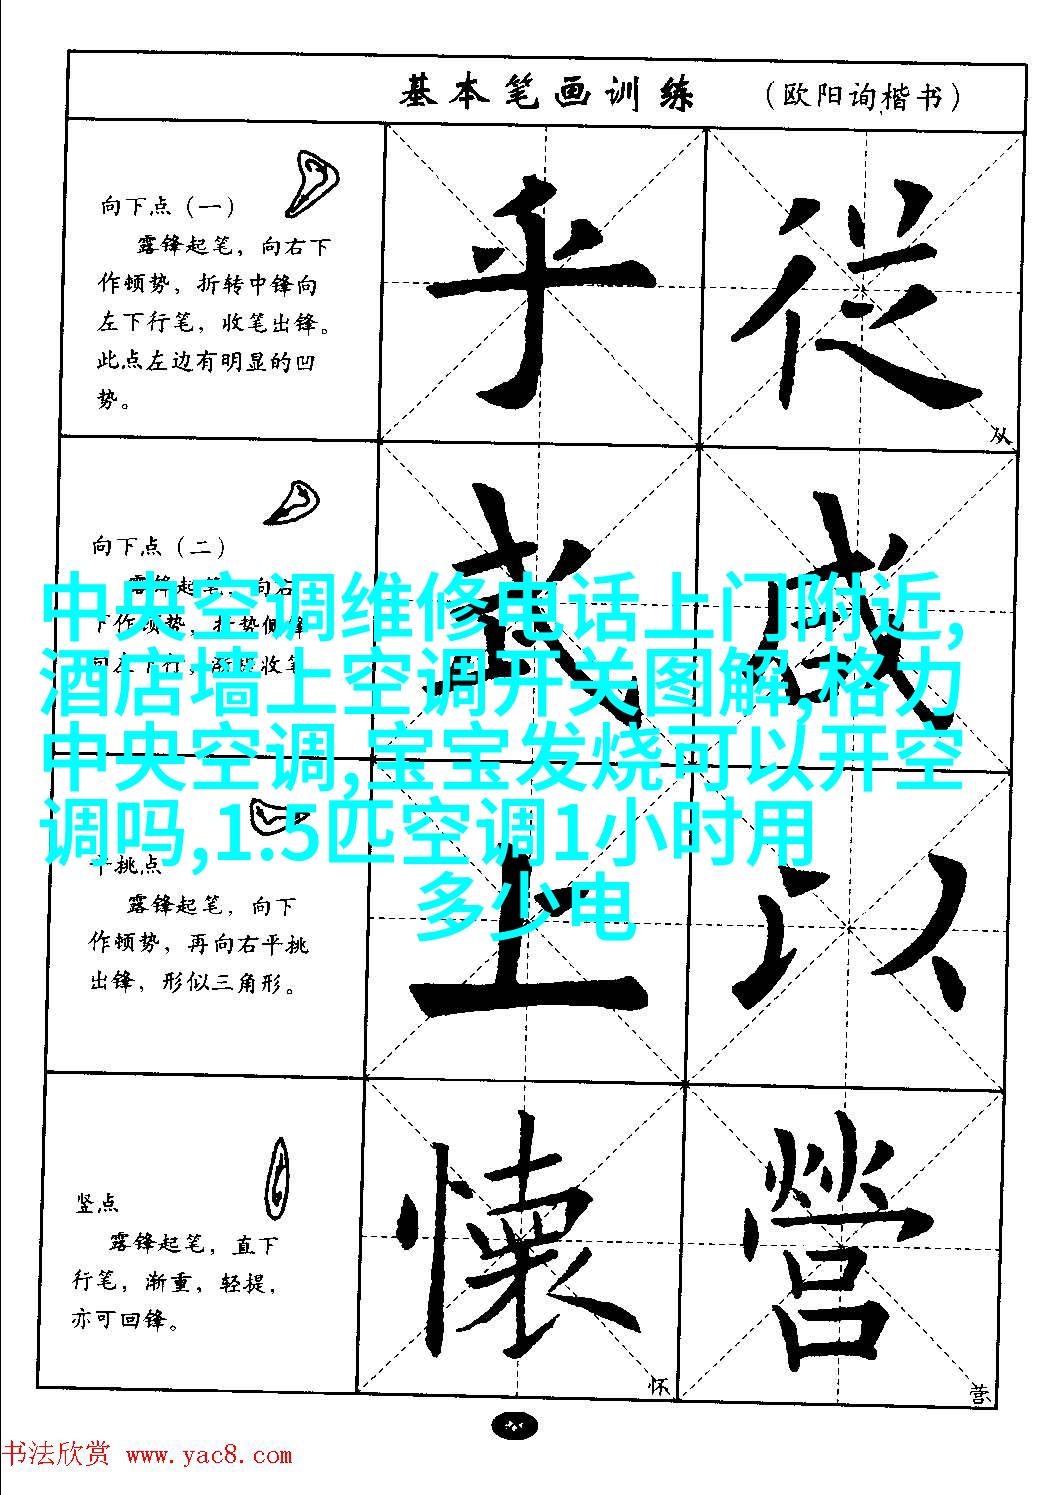 基本笔画训练 （欧阳询楷书）
向下点（一）
露锋起笔，向右下
作顿势，折转中锋向
左下行笔，收笔出锋。
此点左边有明显的凹
势。
乎 從
从
向下点（二）
露锋起笔，向右
下作顿势，折势侧锋
向左下行，渐提收笔
武 咸
中央空调维修电话上门附近,
酒店墙上空调开关图解,格力
中央空调,宝宝发烧可以开空
调吗,1.5匹空调1小时用
多少电
平挑点
露锋起笔，向下
作顿势，再向右平挑
出锋，形似三角形。
上 以
竖点
露锋起笔，直下
行笔，渐重，轻提，
亦可回锋。
懷 營
怀 营
书法欣赏 www.yac8.com